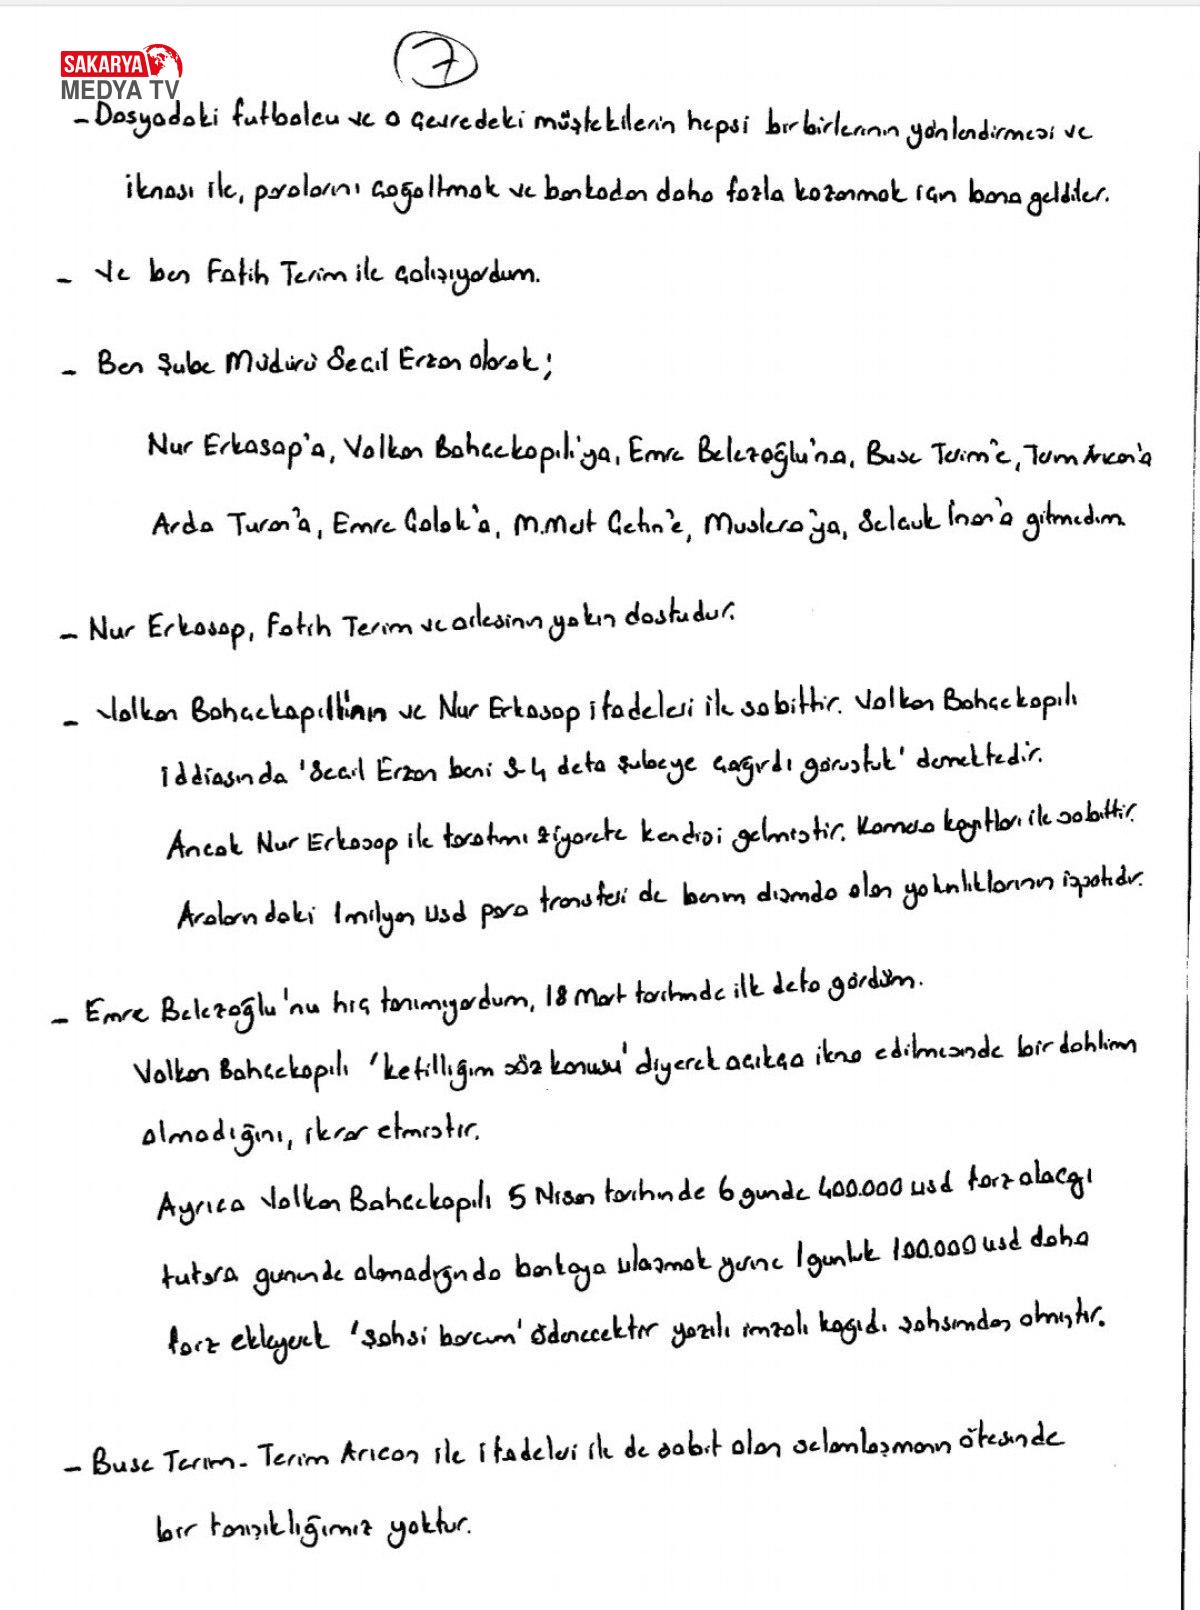 SAKARYA
MEDYA TV
7
- Dosyadaki futbolcu ve o çevredeki müştekilerin hepsi birbirlerinin yönlendirmesi ve
iknası ile, paralarını çoğaltmak ve bankadan daha fazla kazanmak için bana geldiler.
- Ve ben Fatih Terim ile çalışıyordum.
- Ben Şube Müdürü Seçil Erzan olarak;
Nur Erkasap'a, Volkan Bahçekapılı'ya, Emre Belezoğlu'na, Buse Terim'e, Terim Arıcan'a
Arda Turan'a, Emre Çolak'a, M.Mert Çetin'e, Muslera'ya, Selçuk İnan'a gitmedim
- Nur Erkasap, Fatih Terim ve ailesinin yakın dostudur.
- Volkan Bahçekapılı'nın ve Nur Erkasap ifadeleri ile sabittir. Volkan Bahçekapılı
iddiasında 'Seçil Erzan beni 3-4 defa şubeye çağırdı görüştük' demektedir.
Ancak Nur Erkasap ile tarafımı ziyarete kendisi gelmiştir. Kamera kayıtları ile sabittir.
Aralarındaki 1 milyon usd para transferi de benim dışımda olan yakınlıklarının ispatıdır.
- Emre Belezoğlu'nu hiç tanımıyordum, 18 Mart tarihinde ilk defa gördüm.
Volkan Bahçekapılı 'kefilliğim söz konusu' diyerek açıkça ikna edilmesinde bir dahlinin
olmadığını, ikrar etmiştir.
Ayrıca Volkan Bahçekapılı 5 Nisan tarihinde 6 günde 400.000 usd farz alacağı
tutara gününde alamadığında bankaya ulaşmak yerine 1 günlük 100.000 usd daha
farz ekleyerek 'şahsi borcum' ödenecektir yazılı imzalı kağıdı şahsımdan almıştır.
- Buse Terim - Terim Arıcan ile ifadeleri ile de sabit olan selamlaşmanın ötesinde
bir tanışıklığımız yoktur.